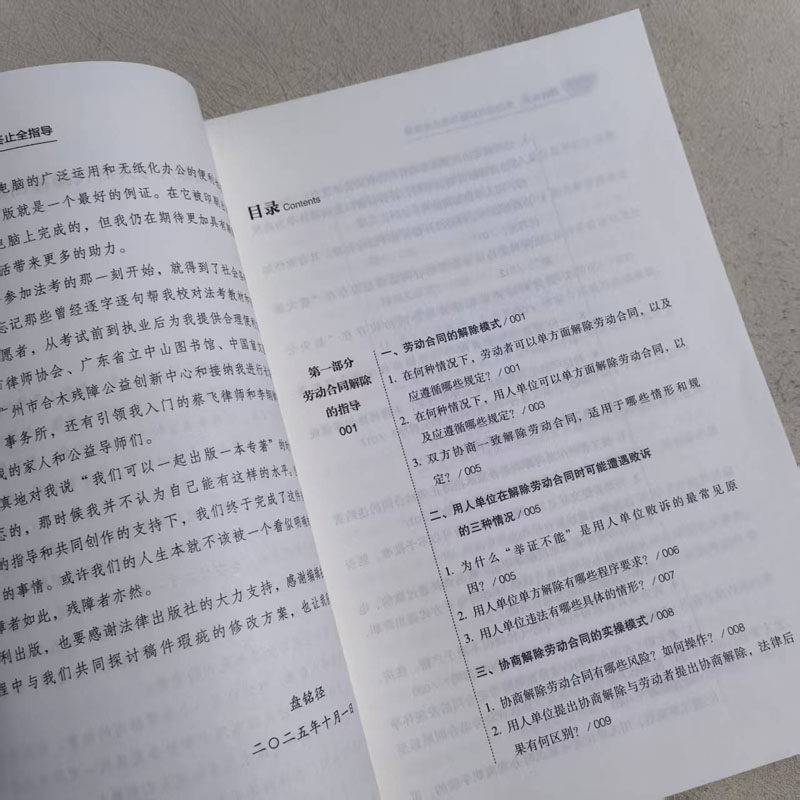 止全指导
电脑的广泛运用和无纸化办公的便利
版就是一个最好的例证。在它被印刷
电脑上完成的，但我仍在期待更加具有
活带来更多的助力。
参加法考的那一刻开始，就得到了社会
忘记那些曾经逐字逐句帮我校对法考教材
愿者，从考试前到执业后为我提供合理便利
律师协会、广东省立中山图书馆、中国盲文
广州市合木残障公益创新中心和接纳我进行
事务所，还有引领我入门的蔡飞律师和李
我的家人和公益导师们。
真地对我说“我们可以一起出版一本专著”的
志的，那时候我并不认为自己能有这样的水平。
的指导和共同创作的支持下，我们终于完成了这
的事情。或许我们的人生本就不该被一个看似明
障者如此，残障者亦然。
利出版，也要感谢法律出版社的大力支持，感谢编辑
程中与我们共同探讨稿件瑕疵的修改方案，也让
盘铭径
二〇二五年十月一日
目录 Contents
第一部分
劳动合同解除
的指导
001
一、劳动合同的解除模式 / 001
1. 在何种情况下，劳动者可以单方面解除劳动合同，以及
应遵循哪些规定？/ 001
2. 在何种情况下，用人单位可以单方面解除劳动合同，以
及应遵循哪些规定？/ 003
3. 双方协商一致解除劳动合同，适用于哪些情形和规
定？/ 005
二、用人单位在解除劳动合同时可能遭遇败诉
的三种情况 / 005
1. 为什么“举证不能”是用人单位败诉的最常见原
因？/ 005
2. 用人单位单方解除有哪些程序要求？/ 006
3. 用人单位违法有哪些具体的情形？/ 007
三、协商解除劳动合同的实操模式 / 008
1. 协商解除劳动合同有哪些风险？如何操作？/ 008
2. 用人单位提出协商解除与劳动者提出协商解除，法律后
果有何区别？/ 009